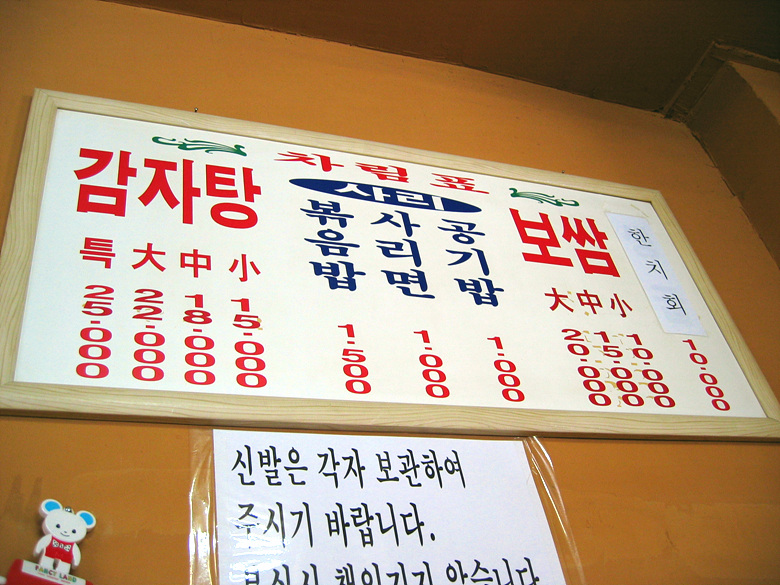 차림표
감자탕
특 大 中 小
25.000 22.000 18.000 15.000
사리
볶음밥 사리면 공기밥
1.500 1.000 1.000
보쌈
大 中 小
20.000 15.000 10.000
한치회
10.000
신발은 각자 보관하여
주시기 바랍니다.
분실시 책임지지 않습니다